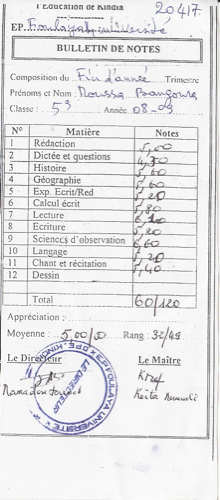 l'Education de Kindia
20417
EP. Foulaya université
BULLETIN DE NOTES
Composition du Fin d'année Trimestre
Prénoms et Nom: Moussa Bangoura
Classe : 5è Année 08-09
N° Matière Notes
1 Rédaction 5,00
2 Dictée et questions 4,50
3 Histoire 5,60
4 Géographie 5,60
5 Exp. Ecrit/Red 5,20
6 Calcul écrit 5,80
7 Lecture
8 Ecriture 5,20
9 Sciences d'observation 6,60
10 Langage 5,20
11 Chant et récitation 5,40
12 Dessin
Total 60/120
Appréciation :
Moyenne : 5,00/50 Rang 32/49
Le Directeur Le Maître
LE DIRECTEUR
Keita